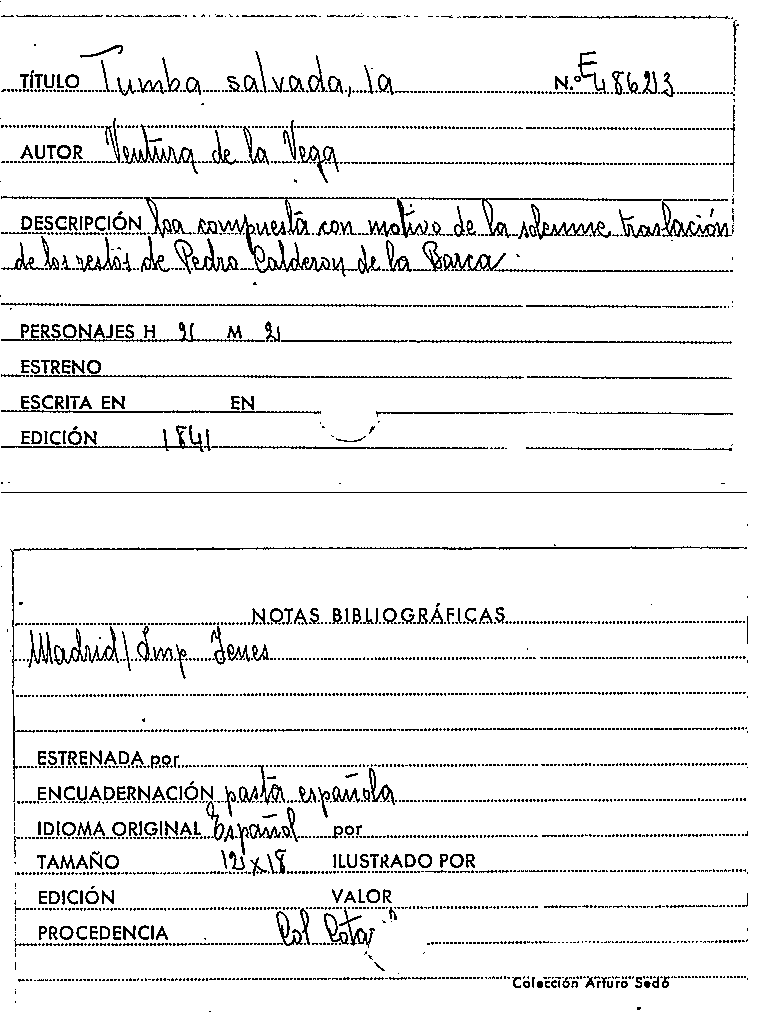 TÍTULO Tumba salvada, la N.º E 48623
AUTOR Ventura de la Vega
DESCRIPCIÓN loa compuesta con motivo de la solemne traslación
de los restos de Pedro Calderon de la Barca
PERSONAJES H 2 M 2
ESTRENO
ESCRITA EN EN
EDICIÓN 1841
NOTAS BIBLIOGRÁFICAS
Madrid / Imp Yenes
ESTRENADA por
ENCUADERNACIÓN pasta española
IDIOMA ORIGINAL Español por
TAMAÑO 12 x 18 ILUSTRADO POR
EDICIÓN VALOR
PROCEDENCIA Col Cota
Colección Arturo Sedó